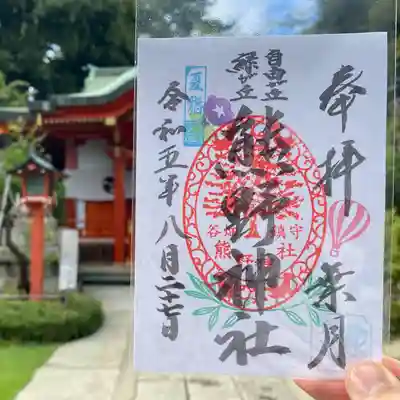 奉拝 葉月
自由が丘
緑が丘
熊野神社
谷畑 鎮守
熊野神社
夏詣
令和五年八月二十七日